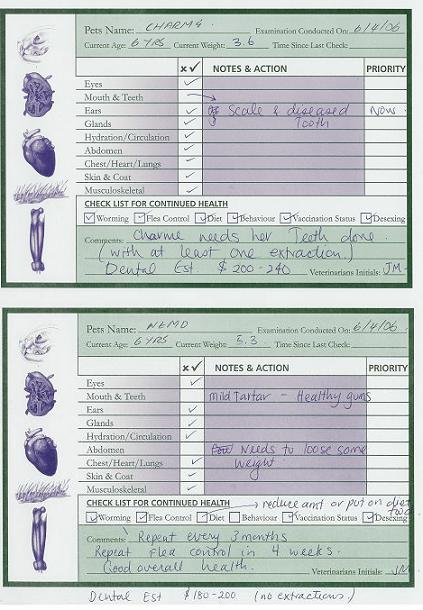 Pets Name: CHARME Examination Conducted On: 6/4/06
Current Age: 6 YRS Current Weight: 3.6 Time Since Last Check:
×✓ NOTES & ACTION PRIORITY
Eyes ✓
Mouth & Teeth
Ears ✓ Scale & diseased Now
Glands ✓ Tooth
Hydration/Circulation ✓
Abdomen ✓
Chest/Heart/Lungs ✓
Skin & Coat ✓
Musculoskeletal ✓
CHECK LIST FOR CONTINUED HEALTH
Worming Flea Control Diet Behaviour Vaccination Status Desexing
Comments: Charme needs her Teeth done.
(with at least one extraction.)
Dental Est. $200-240 Veterinarians Initials: JM
Pets Name: NEMO Examination Conducted On: 6/4/06
Current Age: 6 YRS Current Weight: 5.3 Time Since Last Check:
×✓ NOTES & ACTION PRIORITY
Eyes ✓
Mouth & Teeth mild Tartar - Healthy gums
Ears ✓
Glands ✓
Hydration/Circulation ✓
Abdomen Needs to loose some
Chest/Heart/Lungs ✓ weight
Skin & Coat ✓
Musculoskeletal ✓
CHECK LIST FOR CONTINUED HEALTH → reduce amt or put on diet food
Worming Flea Control Diet Behaviour Vaccination Status Desexing
Comments: Repeat every 3 months
Repeat flea control in 4 weeks.
Good overall health. Veterinarians Initials: JM
Dental Est $180-200 (no extractions.)